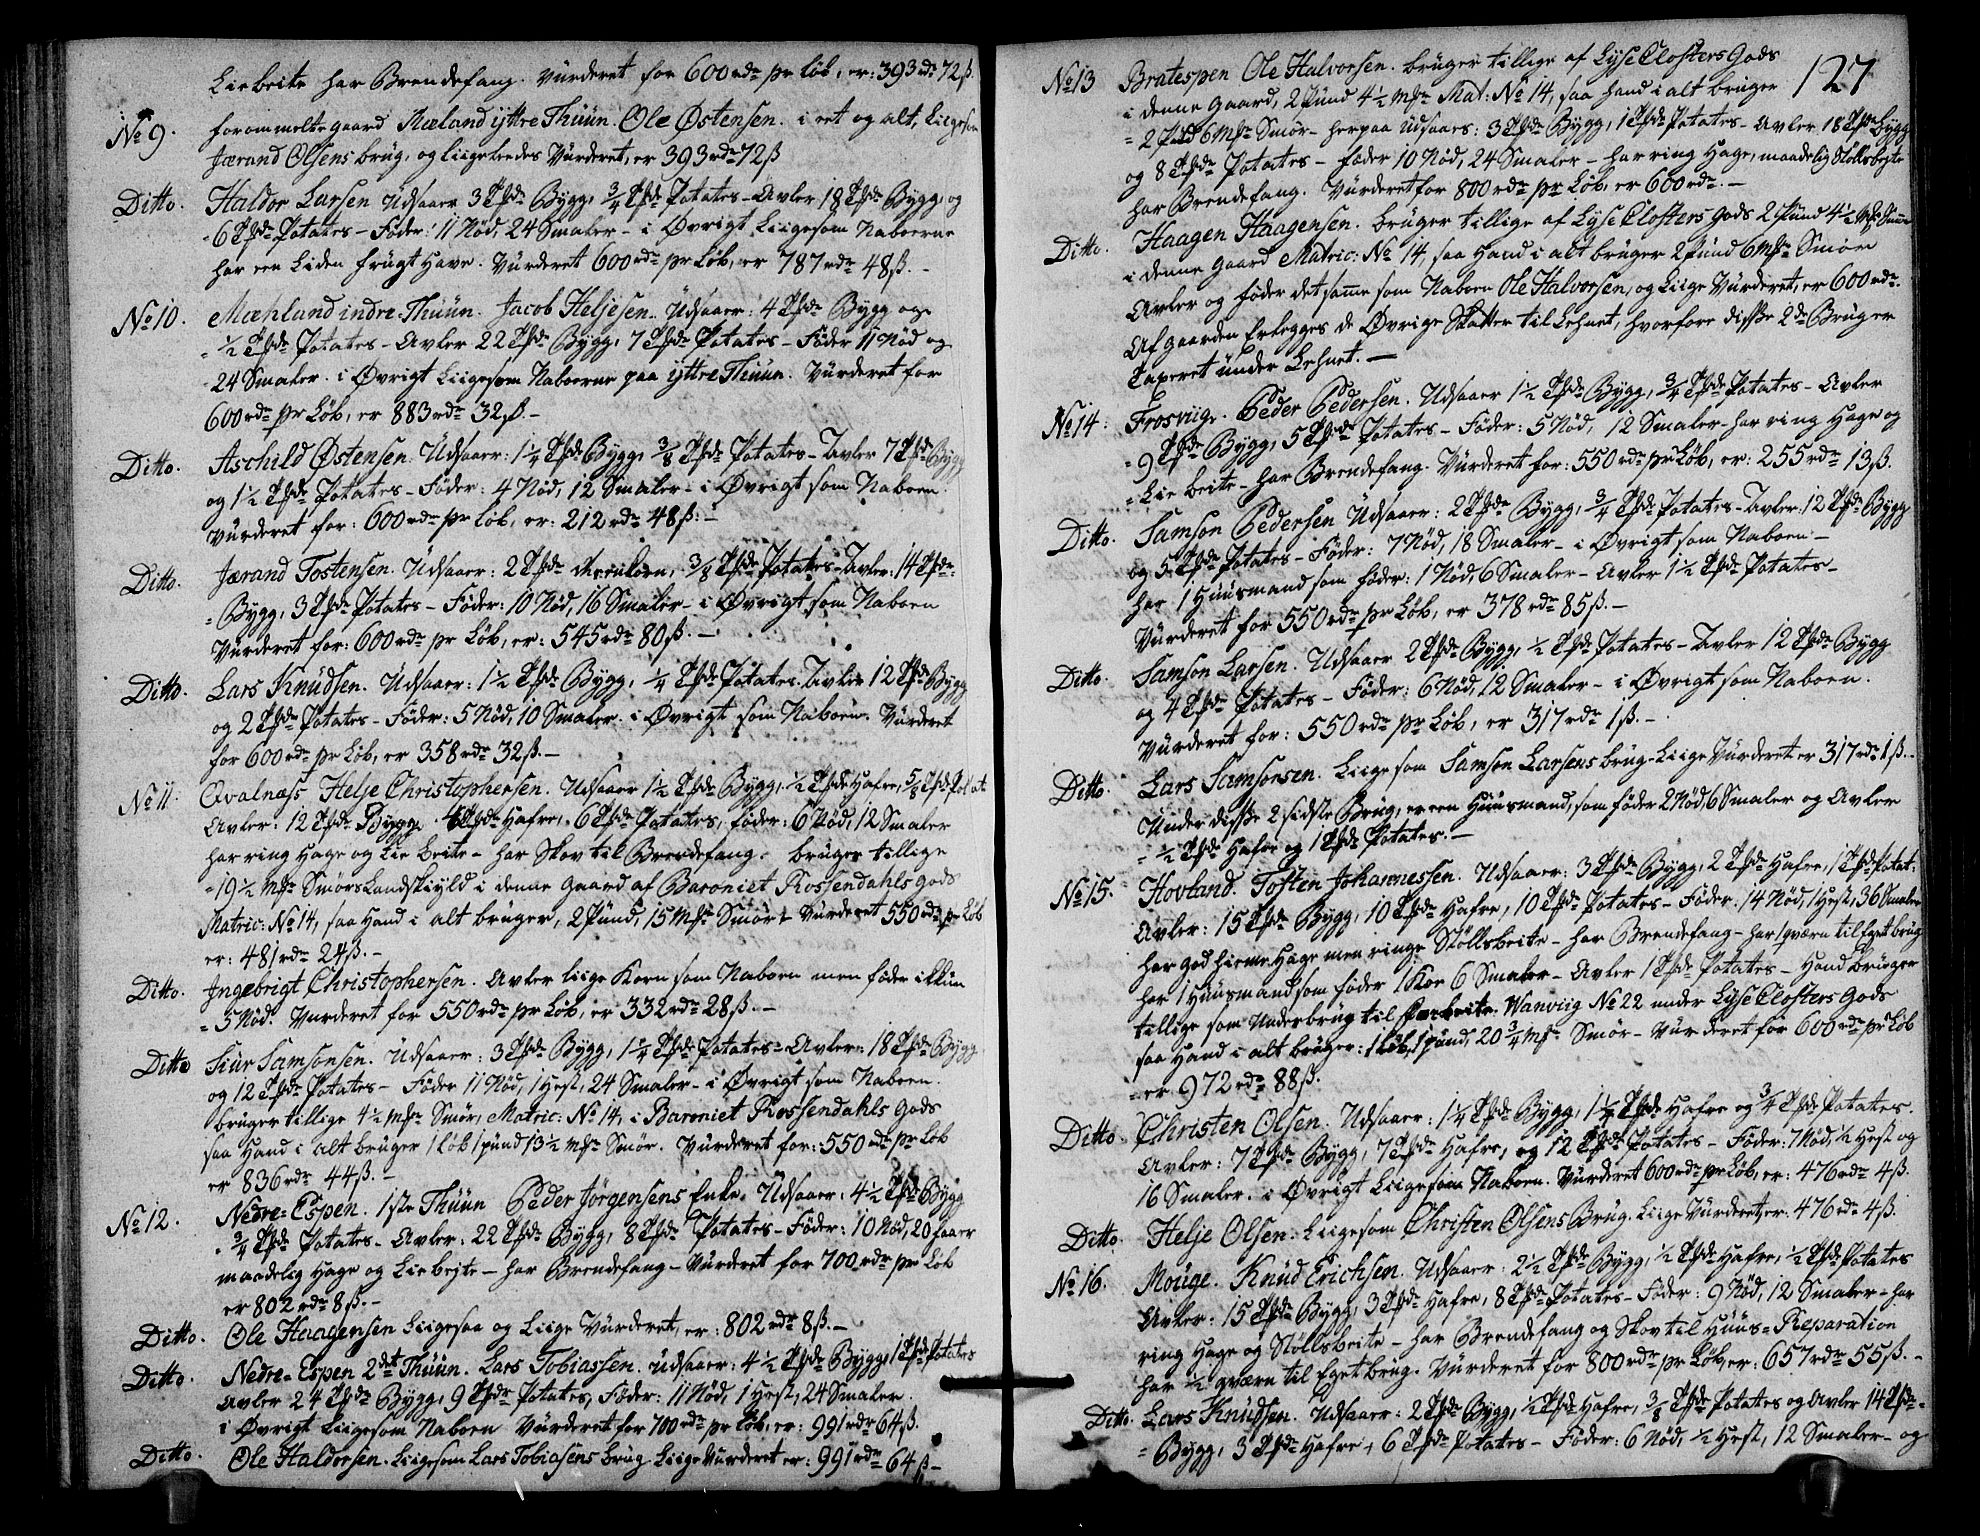 Lie beite har Brendefang. Vurderet for 600 rdr pr Løb, er: 393 rdr 72 ß.
No 9. forommelte gaard Mæland yttre Thuun. Ole Østensen. i eet og alt, Liigesom
Jærand Olsens brug, og liigeledes Vurderet, er 393 rdr 72 ß
Ditto. Haldor Larsen Udsaaer 3 Tdr Bygg, 3/4 Tdr Potates - Avler 18 Tdr Bygg og
6 Tdr Potates - Føder: 11 Nød, 24 Smaler - i Øvrigt Liigesom Naboerne
har een Liden frugt Have. Vurderet 600 rdr pr Løb, er 787 rdr 48 ß. -
No 10. Mæhland indre Thuun. Jacob Heljesen. Udsaaer: 4 Tdr Bygg og
1/2 Tdr Potates - Avler 22 Tdr Bygg, 7 Tdr Potates - Føder 11 Nød og
24 Smaler. i Øvrigt Liigesom Naboerne paa yttre Thuun. Vurderet for
600 rdr pr Løb, er 883 rdr 32 ß. -
Ditto. Aschild Østensen. Udsaaer: 1 1/4 Tdr Bygg, 3/8 Tdr Potates - Avler 7 Tdr Bygg
og 1 1/2 Tdr Potates - Føder: 4 Nød, 12 Smaler - i Øvrigt som Naboen.
Vurderet for: 600 rdr pr Løb, er: 212 rdr 48 ß: -
Ditto. Jærand Tostensen. Udsaaer: 2 Tdr 3/8 Tdr Potates - Avler: 14 Tdr
Bygg, 3 Tdr Potates - Føder: 10 Nød, 16 Smaler - i Øvrigt som Naboen
Vurderet for: 600 rdr pr Løb, er: 545 rdr 80 ß. -
Ditto. Lars Knudsen. Udsaaer: 1 1/2 Tdr Bygg, 1/4 Tdr Potates. Avler 12 Tdr Bygg
og 2 Tdr Potates - Føder: 5 Nød, 10 Smaler. i Øvrigt som Naboen. Vurderet
for 600 rdr pr Løb, er 358 rdr 32 ß. -
No 11. Qvalnæss Helje Christophersen. Udsaaer 1 1/2 Tdr Bygg, 1/2 Tdr Hafre, 5/8 Tdr Potat
Avler: 12 Tdr Bygg 4 Tdr Hafre, 6 Tdr Potates, føder: 6 Nød, 12 Smaler
har ring Hage og Lie beite - har Skov til Brendefang. bruges tillige
19 1/2 Mkr Smørs Landskyld i denne gaard af Baroniet Rossendahls gods
Matric: No 14, saa Hand i alt bruger, 2 Pund, 15 Mkr Smør - Vurderet 550 rdr pr Løb
er: 481 rdr 24 ß. -
Ditto. Ingebrigt Christophersen. Avler liige Korn som Naboen men føder ikkun
5 Nød. Vurderet for 550 rdr pr Løb, er 332 rdr 28 ß. -
Ditto Siur Samsonsen. Udsaaer: 3 Tdr Bygg, 1 1/4 Tdr Potates - Avler: 18 Tdr Bygg
og 12 Tdr Potates - Føder 11 Nød, 1 Hest, 24 Smaler - i Øvrigt som Naboen.
bruger tillige 4 1/2 Mkr Smør, Matric: No 14, i Baroniet Rossendahls gods
saa Hand i alt bruger 1 Løb 1 pund 13 1/2 Mkr Smør. Vurderet for: 550 rdr pr Løb
er 836 rdr 44 ß. -
No 12. Nedre-Espen. 1ste Thuun Peder Jørgensens Enke. Udsaaer: 4 1/2 Tdr Bygg
3/4 Tdr Potates - Avler: 22 Tdr Bygg, 8 Tdr Potates - Føder: 10 Nød, 20 faaer
maadelig Hage og Lie bejte - har Brendefang - Vurderet for 700 rdr pr Løb
er 802 rdr 8 ß. -
Ditto. Ole Haagensen Liigesaa og Liige Vurderet, er: 802 rdr 8 ß. -
Ditto. Nedre-Espen 2det Thuun. Lars Tobiassen. Udsaaer: 4 1/2 Tdr Bygg, 1 Tdr Potates
Avler 24 Tdr Bygg, 9 Tdr Potates, Føder: 11 Nød, 1 Hest, 24 Smaler.
i Øvrigt Liigesom Naboen Vurderet for 700 rdr pr Løb, er: 991 rdr 64 ß.
Ditto. Ole Haldorsen. Liigesom Lars Tobiasens brug Liige Vurderet er: 991 rdr 64 ß -
127
No 13 Bratespen Ole Halvorsen. bruger tillige af Lyse Closters Gods
i denne Gaard, 2 Pund 4 1/2 Mkr Mat: No 14, saa hand i alt bruger
2 Pund 6 Mkr Smør - herpaa Udsaaes: 3 Tdr Bygg, 1 Tdr Potates - Avler 18 Tdr Bygg
og 8 Tdr Potates - føder 10 Nød, 24 Smaler - har ring Hage, maadelig Støllsbejte
har Brendefang. Vurderet for 800 rdr pr Løb, er 600 rdr. -
Ditto. Haagen Haagensen. bruger tillige af Lyse Closters gods 2 Pund 4 1/2 Mkr Smør
i denne Gaard Matric: No 14, saa Hand i alt bruger 2 Pund 6 Mkr Smør
Avler og føder det samme som Naboen Ole Halvorsen, og Liige Vurderet, er 600 rdr.
Af gaarden Erlegges de Øvrige Skatter til Lehnet, hvorfore disse 2de Bruger
Taxeret under Lehnet. -
No 14: Frosviig. Peder Pedersen. Udsaaer 1 1/2 Tdr Bygg, 3/4 Tdr Potates - Avler
9 Tdr Bygg, 5 Tdr Potates - Føder: 5 Nød, 12 Smaler - har ring Hage og
Lie beite - har Brendefang. Vurderet for: 550 rdr pr Løb, er: 255 rdr 13 ß.
Ditto. Samson Pedersen Udsaaer: 2 Tdr Bygg, 3/4 Tdr Potates - Avler: 12 Tdr Bygg
og 5 Tdr Potates - Føder: 7 Nød, 18 Smaler - i Øvrigt som Naboen -
har 1 Huusmand som føder: 1 Nød, 6 Smaler - Avler 1 1/2 Tdr Potates -
Vurderet for 550 rdr pr Løb, er 378 rdr 85 ß. -
Ditto. Samson Larsen. Udsaaer 2 Tdr Bygg, 1/2 Tdr Potates - Avler 12 Tdr Bygg
og 4 Tdr Potates - Føder: 6 Nød, 12 Smaler - i Øvrigt som Naboen.
Vurderet for: 550 rdr pr Løb, er 317 rdr 1 ß. -
Ditto. Lars Samsonsen. Liigesom Samson Larsens brug - Liige Vurderet er 317 rdr 1 ß. -
Under disse 2 sidste Brug, er een Huusmand, som føder 2 Nød, 6 Smaler og Avler
1/2 Tdr Hafre og 1 Tdr Potates. -
No 15. Hovland. Tosten Johannessen. Udsaaer: 3 Tdr Bygg, 2 Tdr Hafre, 1 Tdr Potat:
Avler: 15 Tdr Bygg, 10 Tdr Hafre, 10 Tdr Potates - Føder: 14 Nød, 1 Hest, 36 Smaler
har god hieme Hage men ringe Støllsbeite - har Brendefang - har 1 qværn til Eget brug
har 1 Huusmand som føder 1 Koe 6 Smaler - Avler 1 Tdr Potates - Hand bruger
tillige som Underbrug til Wanviig No 22 under Lyse Closters gods
saa Hand i alt bruger: 1 Løb, 1 pund, 20 3/4 Mkr Smør - Vurderet for 600 rdr pr Løb
er 972 rdr 88 ß.
Ditto. Christen Olsen. Udsaaer: 1 1/4 Tdr Bygg, 1 1/2 Tdr Hafre og 3/4 Tdr Potates.
Avler: 7 Tdr Bygg, 7 Tdr Hafre, og 12 Tdr Potates - Føder: 7 Nød, 1/2 Hest og
16 Smaler. i Øvrigt Liigesom Naboen. Vurderet 600 rdr pr Løb, er: 476 rdr 4 ß.
Ditto. Helje Olsen. Liigesom Christen Olsens Brug. Liige Vurderet, er: 476 rdr 4 ß.
No 16. Mouge. Knud Erichsen. Udsaaer: 2 1/2 Tdr Bygg, 1/2 Tdr Hafre, 1/2 Tdr Potates
Avler: 15 Tdr Bygg, 3 Tdr Hafre, 8 Tdr Potates - Føder: 9 Nød, 12 Smaler - har
ring Hage og Støllsbeite - har Brendefang og Skov til Huus-Reparation
har 1/2 qværn til Eget brug. Vurderet for 800 rdr pr Løb, er: 657 rdr 55 ß. -
Ditto. Lars Knudsen. Udsaaer: 2 Tdr Bygg, 1/2 Tdr Hafre, 3/8 Tdr Potates og Avler 14 Tdr
Bygg, 3 Tdr Hafre, 6 Tdr Potates - Føder: 6 Nød, 1/2 Hest, 12 Smaler - og